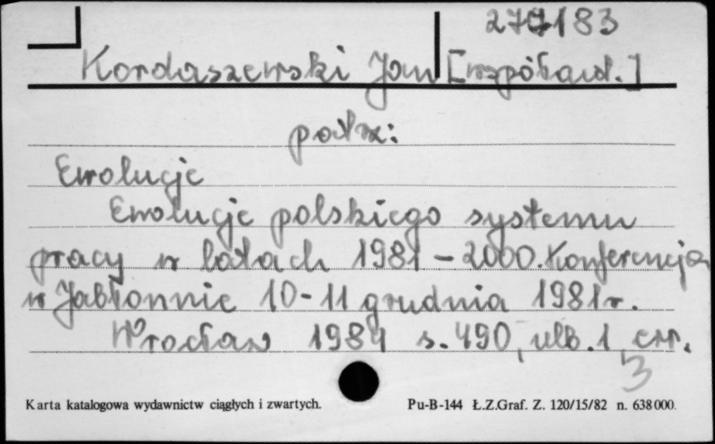 277183
Kordaszewski Jan [współaut.]
patrz:
Ewolucje
Ewolucje polskiego systemu
pracy w latach 1981-2000. Konferencja
w Jabłonnie 10-11 grudnia 1981r.
Wrocław 1984 s. 490, nlb. 1, err.
3
Karta katalogowa wydawnictw ciągłych i zwartych. Pu-B-144 Ł.Z.Graf. Z. 120/15/82 n. 638000.